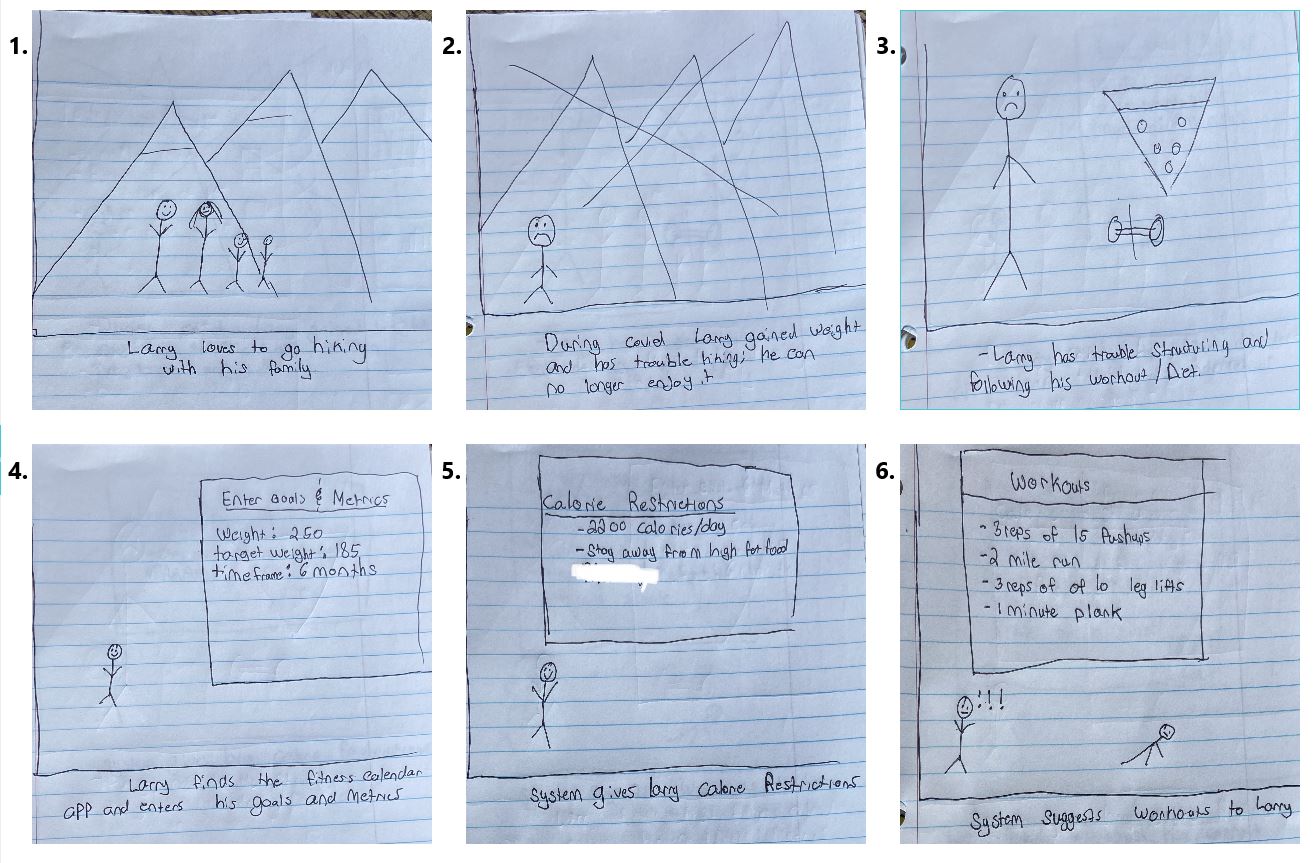 1.
Larry loves to go hiking
with his family
2.
During covid Larry gained weight
and has trouble hiking; he can
no longer enjoy it
3.
-Larry has trouble structuring and
following his workout/Diet.
4.
Enter Goals & Metrics
Weight: 250
target weight: 185
timeframe: 6 months
Larry finds the fitness calendar
app and enters his goals and metrics
5.
Calorie Restrictions
-2200 calories/day
-Stay away from high fat food
System gives larry Calorie Restrictions
6.
Workouts
-3 reps of 15 Pushups
-2 mile run
-3 reps of of 10 leg lifts
-1 minute plank
!!!
System suggests workouts to Larry